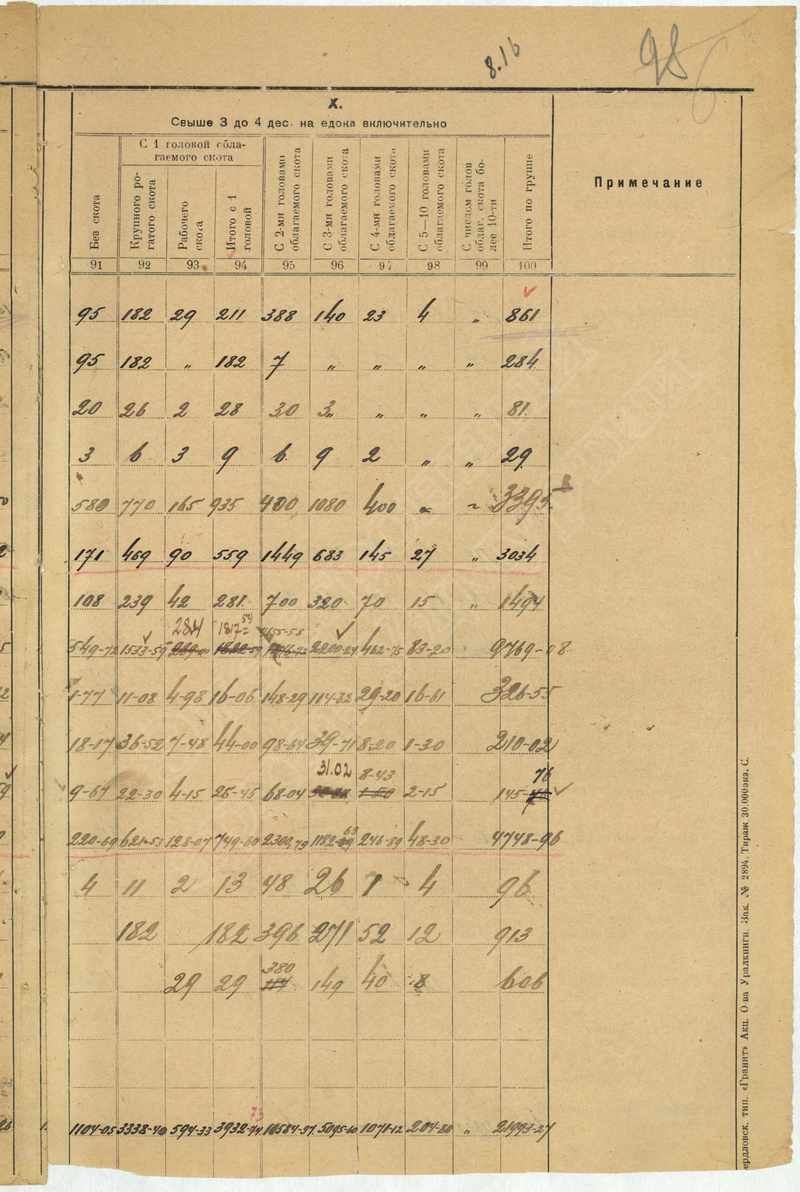 8.16
98
X.
Свыше 3 до 4 дес. на едока включительно
Без скота
С 1 головой облагаемого скота
Крупного рогатого скота
Рабочего скота
Итого с 1 головой
С 2-мя головами облагаемого скота
С 3-мя головами облагаемого скота
С 4-мя головами облагаемого скота
С 5—10 головами облагаемого скота
С числом голов облаг. скота более 10-ти
Итого по группе
Примечание
91 92 93 94 95 96 97 98 99 100
95 182 29 211 388 140 23 4 „ 861
95 182 „ 182 7 „ „ „ „ 284
20 26 2 28 30 3 „ „ „ 81
3 6 3 9 6 9 2 „ „ 29
580 770 165 935 400 1080 400 „ „ 3395
171 469 90 559 1449 683 145 27 „ 3034
108 239 42 281 700 320 70 15 „ 1494
284
549-72 1533-59 462-75 83-20 9769-08
1-77 11-08 4-98 16-06 148-29 114-32 29-20 16-61 326-55
18-17 36-52 7-48 44-00 98-64 39-71 8-20 1-30 210-02
31.02 8-43 76
9-64 22-30 4-15 26-45 68-04 2-15 145-
220-69 621-53 128-07 749-60 2300,79 1182- 246-89 48-30 4748-96
4 11 2 13 48 26 1 4 96
182 182 396 271 52 12 913
380
29 29 149 40 8 606
73
1104-05 3338-40 594-33 3932-74 10584-37 5095-60 1071-12 204-80 „ 21993-27
ердловск, тип. «Гранит» Акц. О-ва Уралкниги. Зак. № 2894. Тираж 30.000 экз. С.